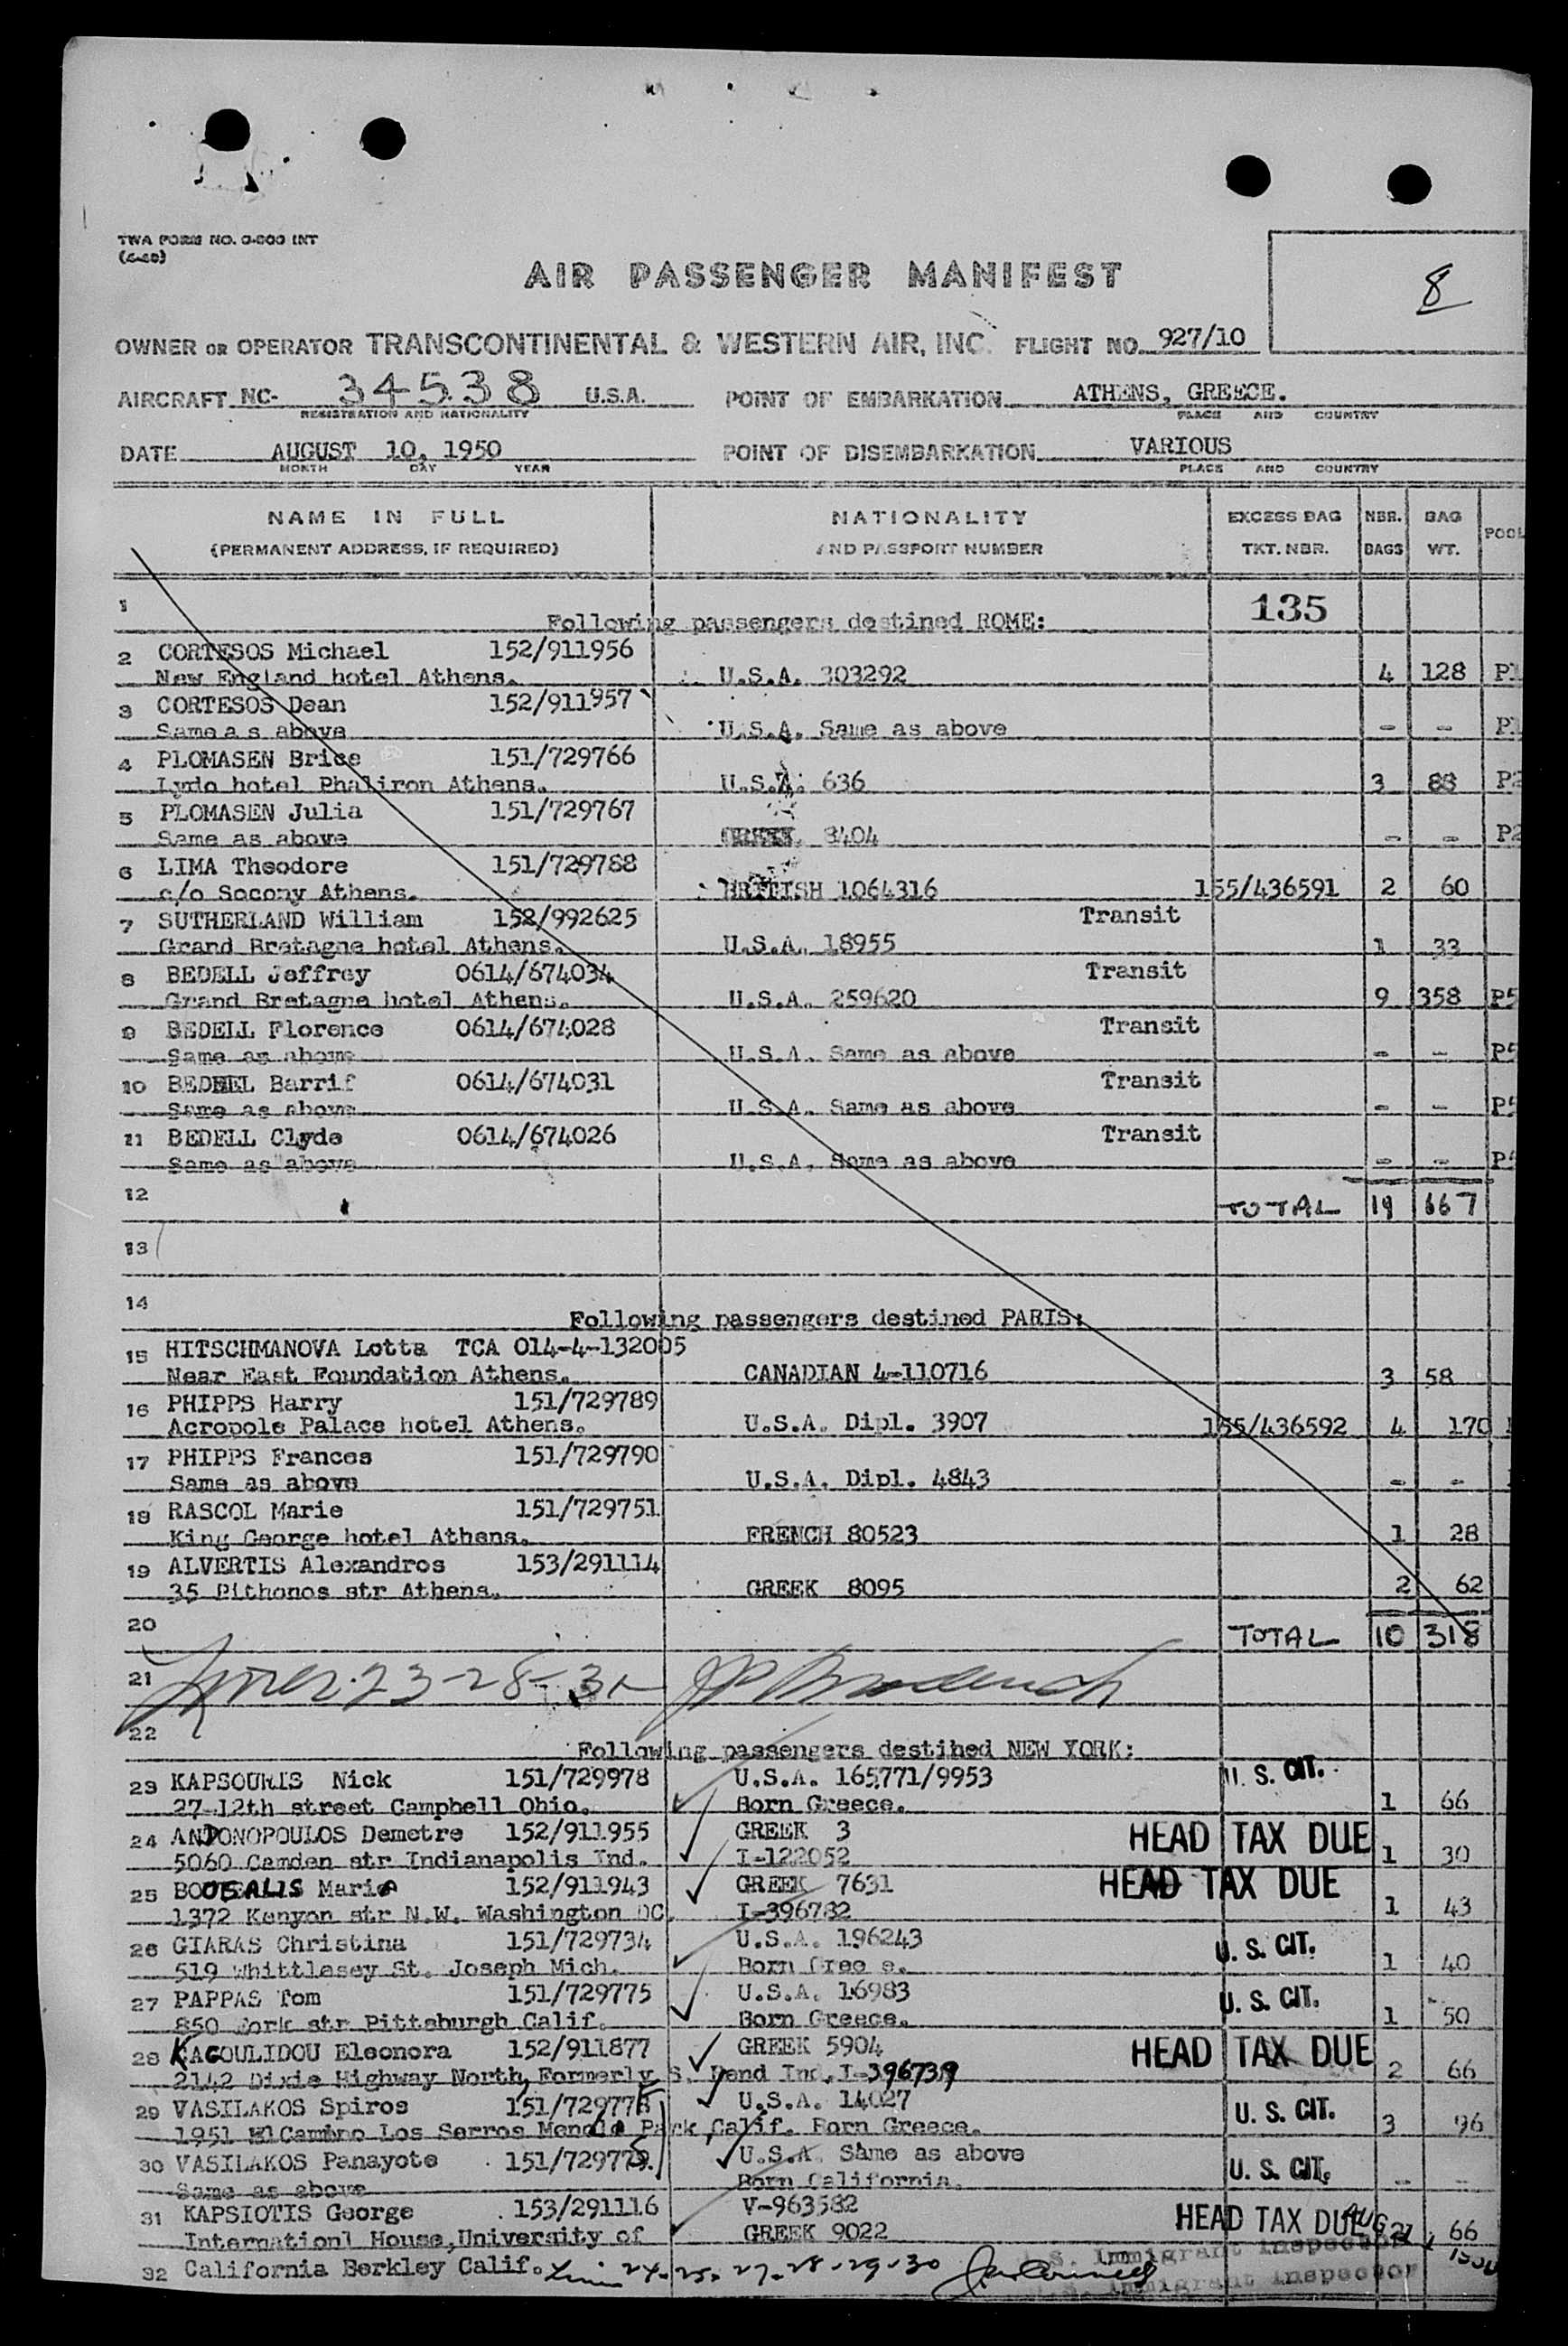 TWA FORM NO. 0-800 INT
8
AIR PASSENGER MANIFEST
OWNER OR OPERATOR TRANSCONTINENTAL & WESTERN AIR, INC. FLIGHT NO. 927/10
AIRCRAFT NC- 34538 U.S.A. POINT OF EMBARKATION ATHENS, GREECE.
REGISTRATION AND NATIONALITY PLACE AND COUNTRY
DATE AUGUST 10, 1950 POINT OF DISEMBARKATION VARIOUS
MONTH DAY YEAR PLACE AND COUNTRY
NAME IN FULL NATIONALITY EXCESS BAG NBR. BAG POOL
(PERMANENT ADDRESS, IF REQUIRED) AND PASSPORT NUMBER TKT. NBR. BAGS WT.
1 135
Following passengers destined ROME:
2 CORTESOS Michael 152/911956
New England hotel Athens. U.S.A. 303292 4 128 P1
3 CORTESOS Dean 152/911957
Same a s above U.S.A. Same as above - - P1
4 PLOMASEN Brice 151/729766
Lydo hotel Phaliron Athens. U.S.A. 636 3 88 P2
5 PLOMASEN Julia 151/729767
Same as above GREEK 8404 - - P2
6 LIMA Theodore 151/729788
c/o Socony Athens. BRITISH 1064316 155/436591 2 60
7 SUTHERLAND William 152/992625 Transit
Grand Bretagne hotel Athens. U.S.A. 18955 1 33
8 BEDELL Jeffrey 0614/674034 Transit
Grand Bretagne hotel Athens. U.S.A. 259620 9 358 P5
9 BEDELL Florence 0614/674028 Transit
Same as above U.S.A. Same as above - - P5
10 BEDEEL Barrif 0614/674031 Transit
Same as above U.S.A. Same as above - - P5
11 BEDELL Clyde 0614/674026 Transit
Same as above U.S.A. Same as above - - P5
12 TOTAL 19 667
13
14
Following passengers destined PARIS:
15 HITSCHMANOVA Lotta TCA 014-4-132005
Near East Foundation Athens. CANADIAN 4-110716 3 58
16 PHIPPS Harry 151/729789
Acropole Palace hotel Athens. U.S.A. Dipl. 3907 155/436592 4 170
17 PHIPPS Frances 151/729790
Same as above U.S.A. Dipl. 4843 - -
18 RASCOL Marie 151/729751
King George hotel Athens. FRENCH 80523 1 28
19 ALVERTIS Alexandros 153/291114
35 Pithonos str Athens. GREEK 8095 2 62
20 TOTAL 10 318
21 23-28-31
22
Following passengers destined NEW YORK:
23 KAPSOURIS Nick 151/729978 U.S.A. 165771/9953 U. S. CIT.
27-12th street Campbell Ohio. Born Greece. 1 66
24 ANTONOPOULOS Demetre 152/911955 GREEK 3 HEAD TAX DUE
5060 Camden str Indianapolis Ind. I-122052 1 30
25 BOUSALIS Maria 152/911943 GREEK 7631 HEAD TAX DUE
1372 Kenyon str N.W. Washington DC. I-396782 1 43
26 GIARAS Christina 151/729734 U.S.A. 196243 U. S. CIT.
519 Whittlesey St. Joseph Mich. Born Gree e. 1 40
27 PAPPAS Tom 151/729775 U.S.A. 16983 U. S. CIT.
850 York str Pittsburgh Calif. Born Greece. 1 50
28 KAGOULIDOU Eleonora 152/911877 GREEK 5904 HEAD TAX DUE
2142 Dixie Highway North, Formerly S. Bend Ind. I-396739 2 66
29 VASILAKOS Spiros 151/729778 U.S.A. 14027 U. S. CIT.
1951 ElCamino Los Serros Menolo Park, Calif. Born Greece. 3 96
30 VASILAKOS Panayote 151/729779. U.S.A. Same as above U. S. CIT.
Same as above Born California. - -
31 KAPSIOTIS George 153/291116 V-963582 HEAD TAX DUE
Internationl House,University of GREEK 9022 2 66
32 California Berkley Calif. 24-25-27-28-29-30 U.S. Immigrant Inspector
Immigrant Inspector